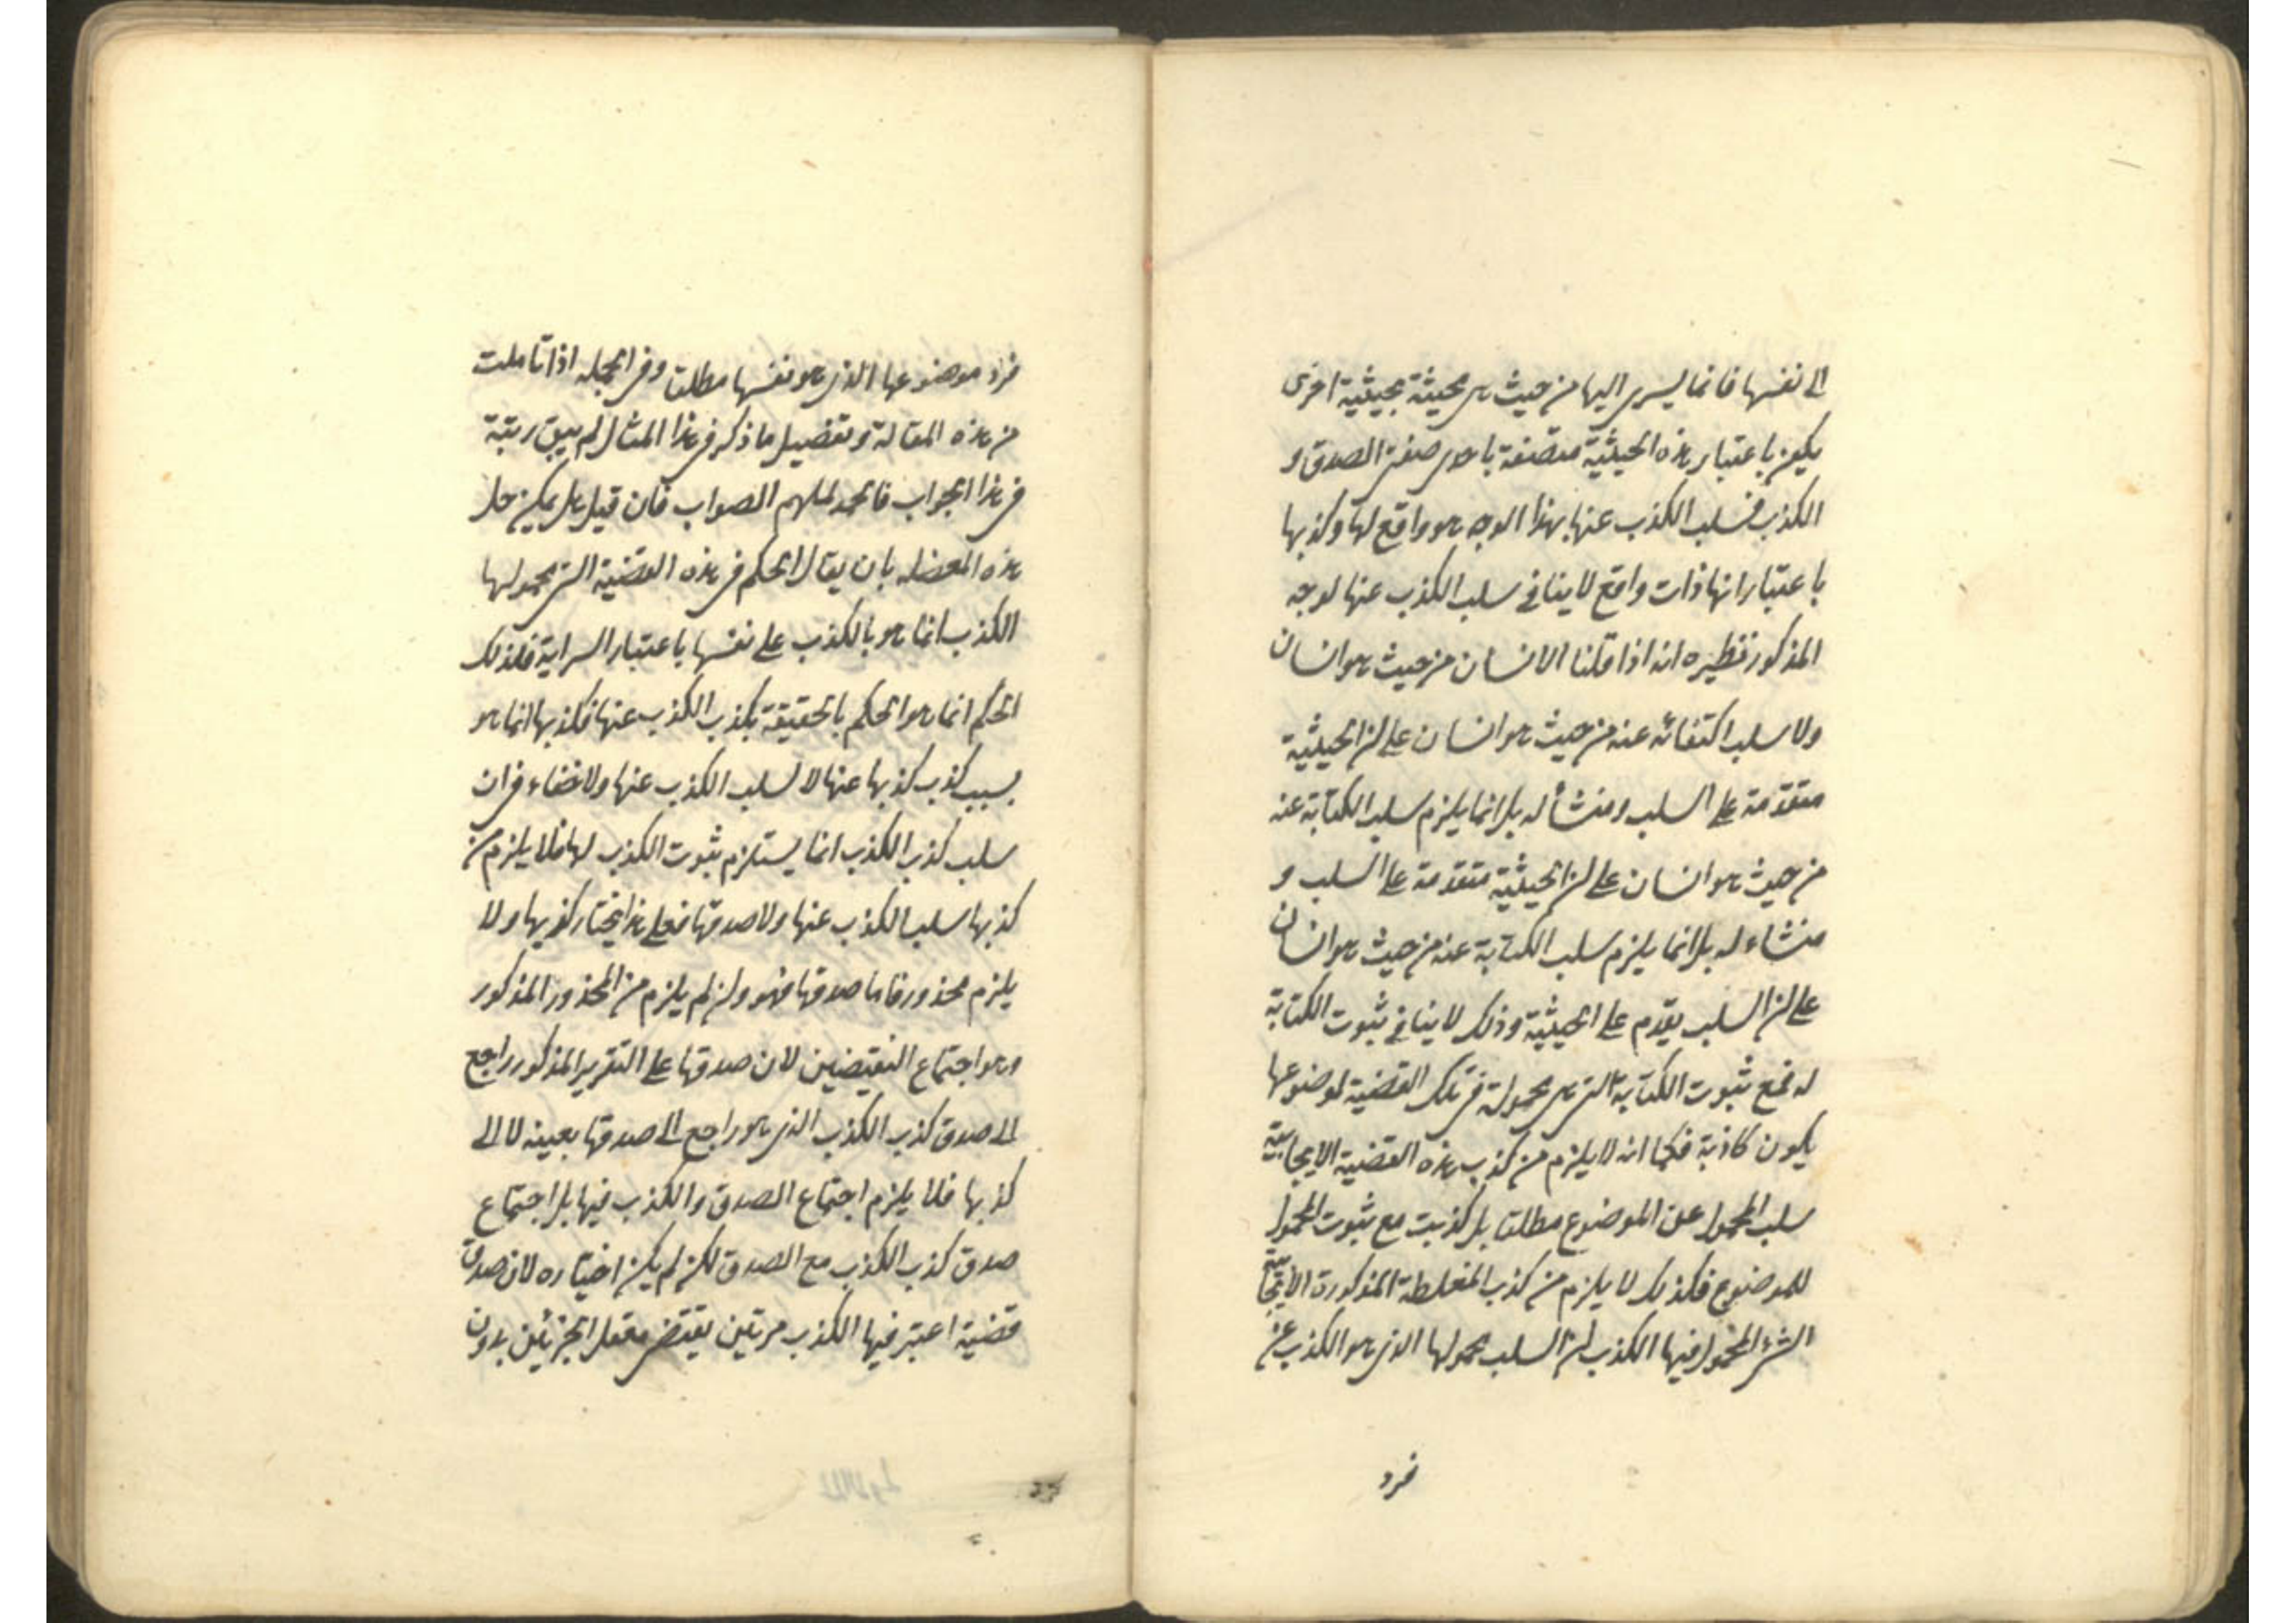 الى نفسها فانما يسرى اليها من حيث هى محيثة بحيثية اخرى
يكون باعتبار هذه الحيثية متصفة باحدى صفتى الصدق و
الكذب فسلب الكذب عنها بهذا الوجه هو واقع لها وكذبها
باعتبار انها ذات واقع لا ينافى سلب الكذب عنها لوجه
المذكور نظيره انه اذا قلنا الانسان من حيث هو انسان
ولا سلب اكتفائه عنه من حيث هو انسان على ان الحيثية
متقدمة على السلب ومنشأ له بل انما يلزم سلب الكتابة عنه
من حيث هو انسان على ان الحيثية متقدمة على السلب و
منشاء له بل انما يلزم سلب الكتابة عنه من حيث هو انسان
على ان السلب يقدم على الحيثية وذلك لا ينافى ثبوت الكتابة
له فمع ثبوت الكتابة التى هى محمولة فى تلك القضية لموضوعها
يكون كاذبة فكما انه لا يلزم من كذب هذه القضية الايجابية
سلب المحمول عن الموضوع مطلقا بل كذبت مع ثبوت المحمول
للموضوع فكذلك لا يلزم من كذب المغلطة المذكورة الايجابية
الشئ المحمول فيها الكذب ان السلب محمولها الذى هو الكذب عن
فرد
فرد موضوعها الذى هو نفسها مطلقا وفى الجمله اذا تاملت
من هذه المقالة وتفصيل ما ذكر فى هذا المثال لم يبق ريبة
فى هذا الجواب فالحمد لملهم الصواب فان قيل هل يمكن حل
هذه المعضله بان يقال الحكم فى هذه القضية التى محمولها
الكذب انما هو بالكذب على نفسها باعتبار السراية فلذلك
الحكم انما هو الحكم بالحقيقة بكذب الكذب عنها فكذبها انما هو
بسبب كذب كذبها عنها لا لسلب الكذب عنها ولا خفاء فى ان
سلب كذب الكذب انما يستلزم ثبوت الكذب لها فلا يلزم من
كذبها سلب الكذب عنها ولا صدقها فعلى هذا يختار كذبها ولا
يلزم محذور فاما صدقها فهو وان لم يلزم من المحذور المذكور
وهو اجتماع النقيضين لان صدقها على التقرير المذكور راجع
الى صدق كذب الكذب الذى هو راجع الى صدقها بعينه لا الى
كذبها فلا يلزم اجتماع الصدق والكذب فيها بل اجتماع
صدق كذب الكذب مع الصدق لكن لم يكن اختياره لان صدق
قضية اعتبر فيها الكذب مرتين يقتضى تعقل الجزئين بدون